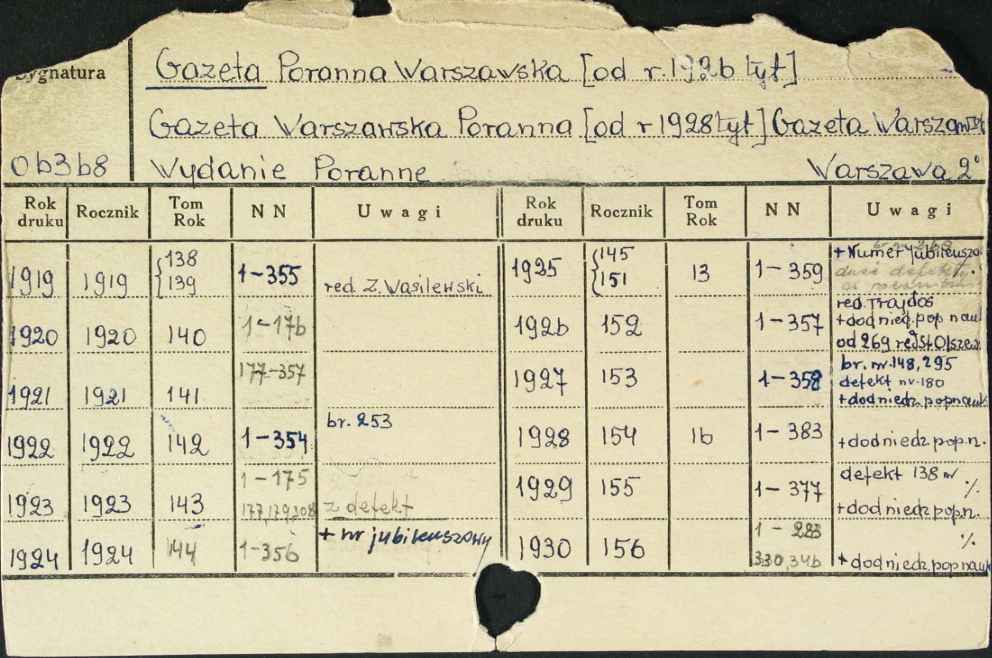 Sygnatura
Gazeta Poranna Warszawska [od r. 1926 tyt]
Gazeta Warszawska Poranna [od r 1928 tyt] Gazeta Warszawsk
06368 Wydanie Poranne Warszawa 2°
Rok druku Rocznik Tom Rok NN Uwagi Rok druku Rocznik Tom Rok NN Uwagi
1919 1919 {138 139 1-355 red Z. Wasilewski 1925 {145 151 13 1-359 + Numer jubileuszo
1920 1920 140 1-176 1926 152 1-357 red. Trajdos + dod nied. pop nauk od 269 red St Olszew
1921 1921 141 177-357 1927 153 1-358 br. nr. 148, 295 defekt nr 180 + dod niedz. pop nauk
1922 1922 142 1-354 br. 253 1928 154 16 1-383 + dod niedz pop. n.
1923 1923 143 1-175 177, 179, 308 z defekt 1929 155 1-377 defekt 138 nr %. + dod niedz pop. n.
1924 1924 144 1-356 + nr jubileuszowy 1930 156 1-283 330, 346 %. + dod niedz, pop nauk